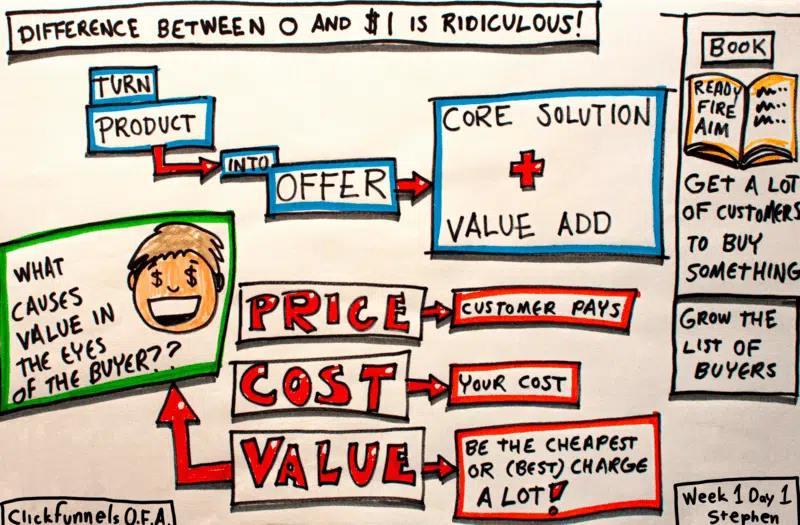 DIFFERENCE BETWEEN 0 AND $1 IS RIDICULOUS!
TURN
PRODUCT
INTO
OFFER
CORE SOLUTION
+
VALUE ADD
BOOK
READY
FIRE
AIM
GET A LOT
OF CUSTOMERS
TO BUY
SOMETHING
GROW THE
LIST OF
BUYERS
WHAT
CAUSES
VALUE IN
THE EYES
OF THE BUYER??
$ $
PRICE
CUSTOMER PAYS
COST
YOUR COST
VALUE
BE THE CHEAPEST
OR (BEST) CHARGE
A LOT!
Clickfunnels O.F.A.
Week 1 Day 1
Stephen